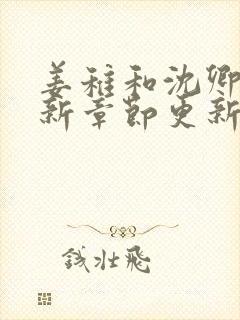 姜稚和沈卿
新章节更新
钱壮飛